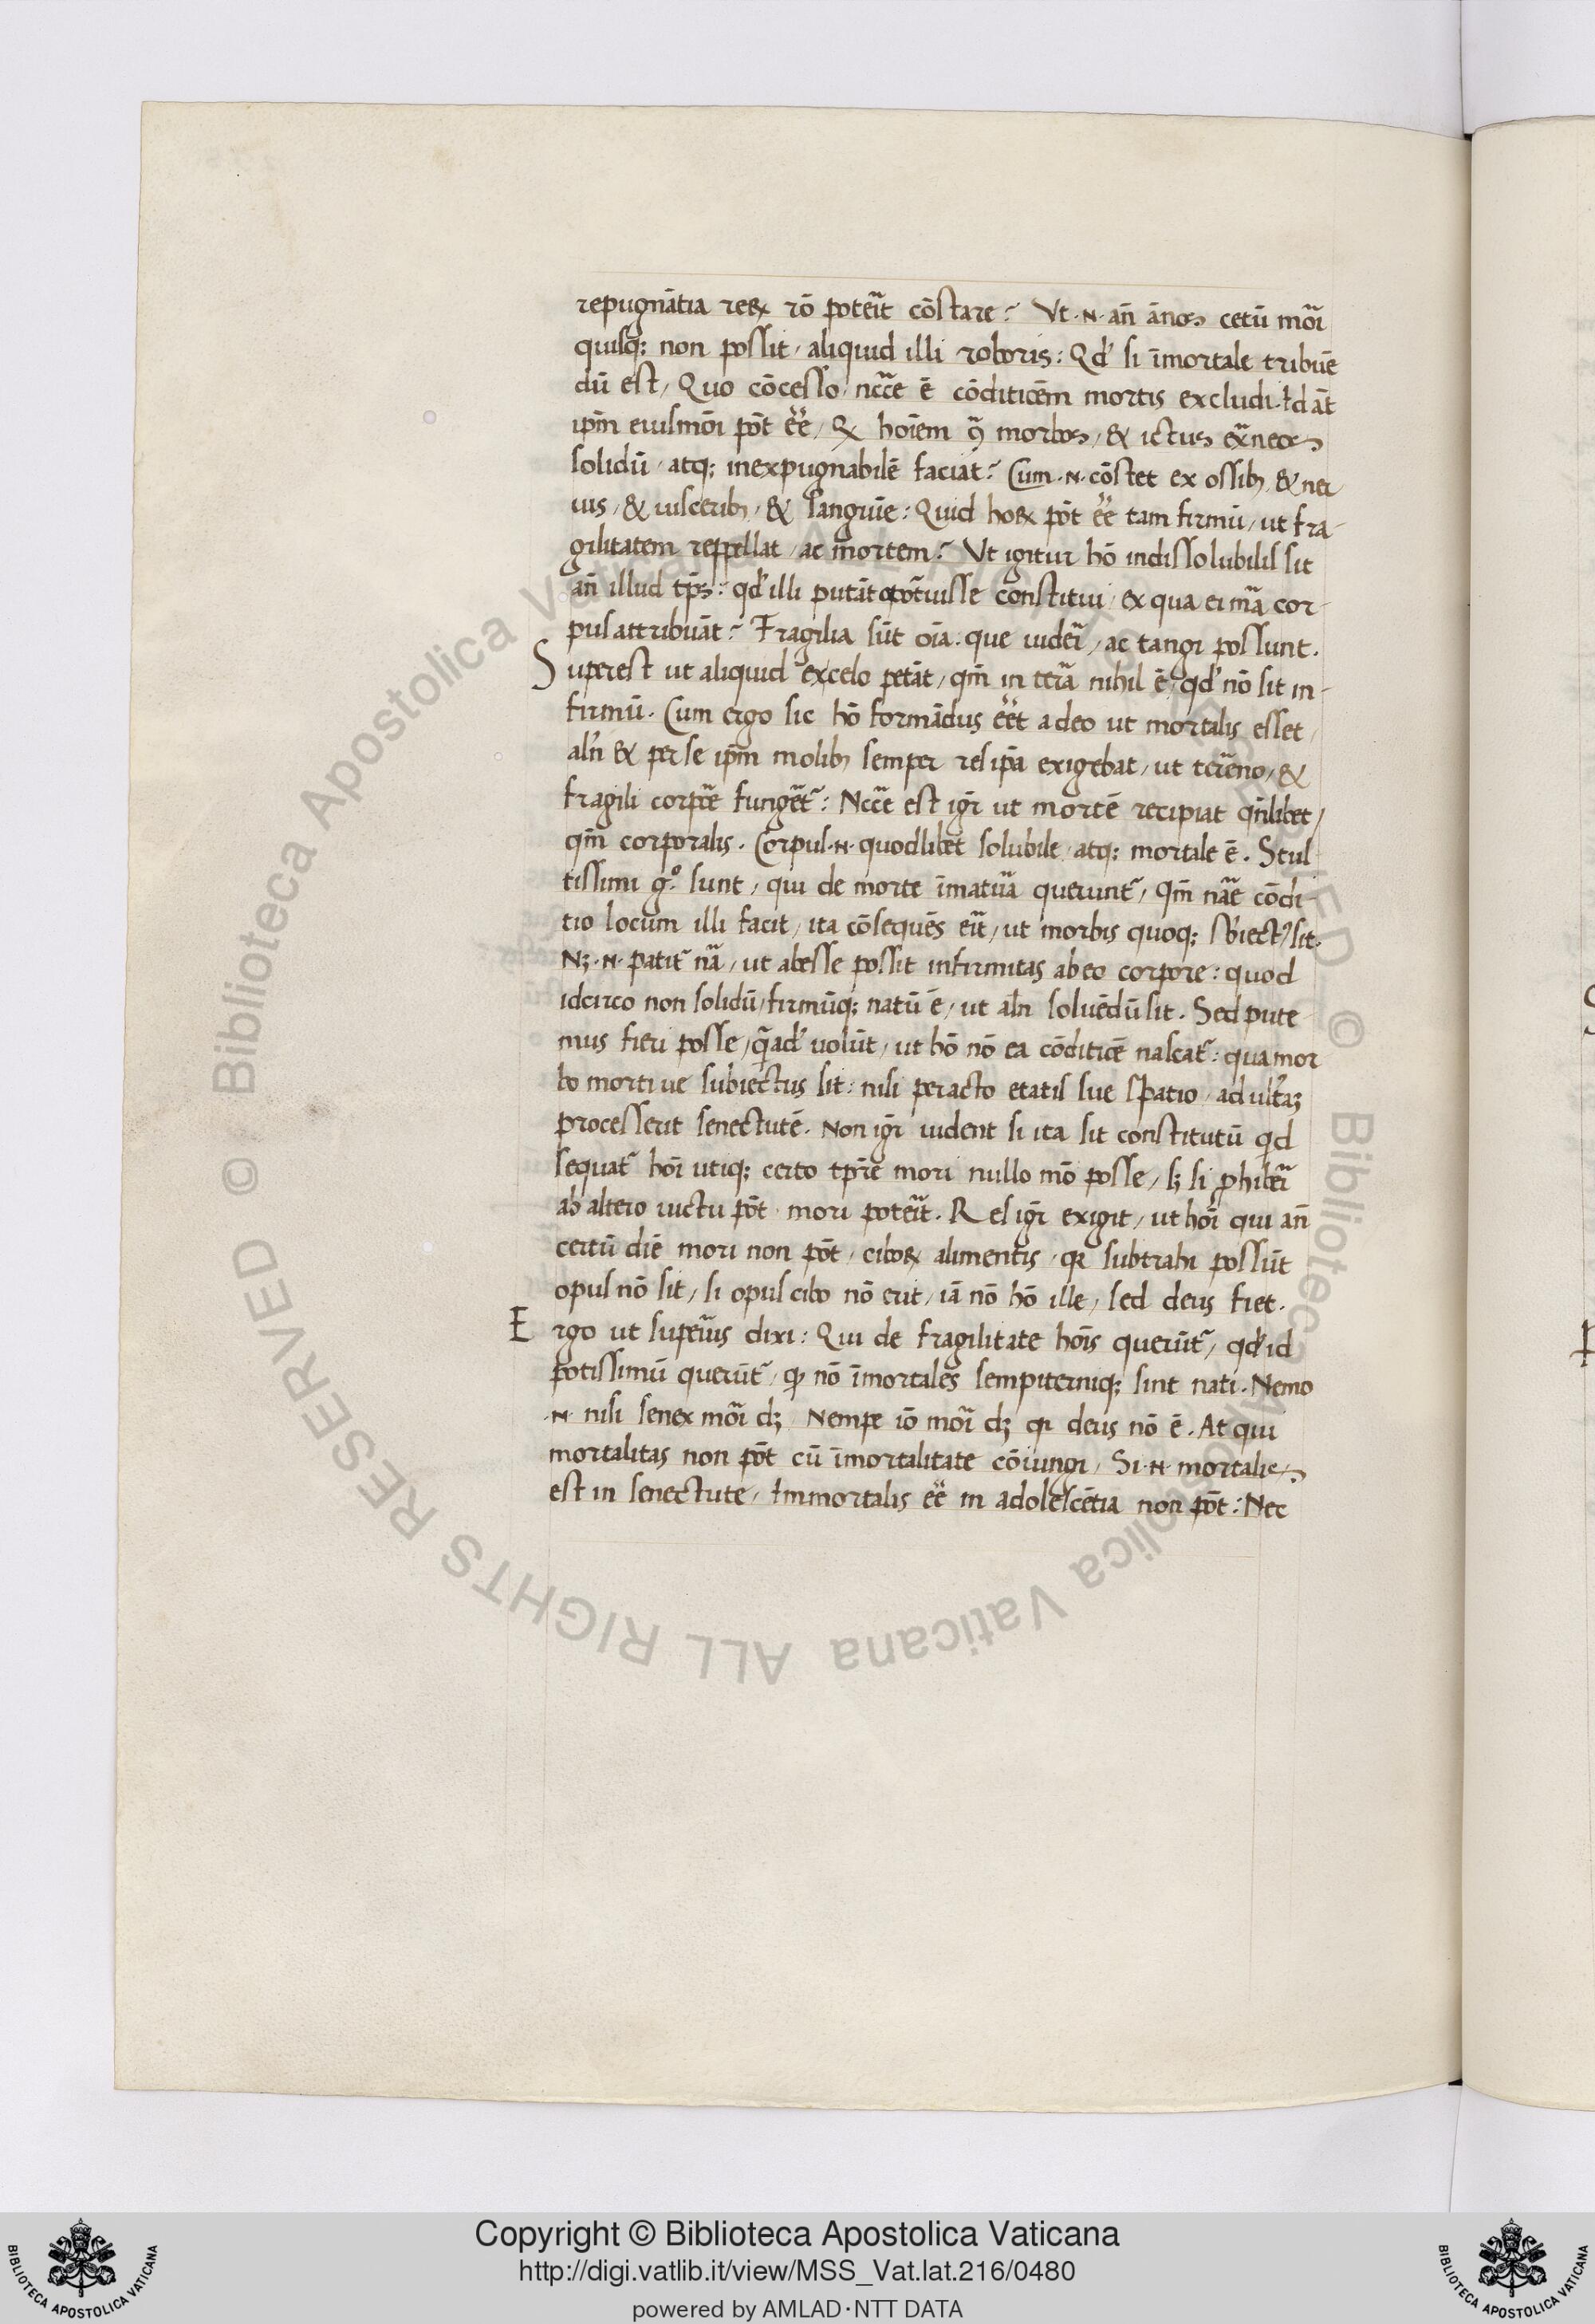 repugnātia reꝝ rō poteīt cōstare? Vt .N. an̄ ānos cētū moī
quisq; non possit, aliquid illi roboris: Qd' si īmortale tribuē
dū est, Quo cōcesso, nc̄ce ē cōditiōem mortis excludi. Id āt
ip̄m eiusmōi pōt ēe, Qꝫ hoīem q̄ morbos, & ictus ex̄neos
solidū, atq; inexpugnabilē faciat? Cum .N. cōstet ex ossib, & ner
uis, & uisceribꝫ, & sanguīe: Quid hoꝝ pōt ēe tam firmū, ut fra-
gilitatem reppellat, ac mortem? Vt igitur hō indissolubilis sit
an̄ illud tp̄s: qd' illi putāt oportuisse constitui, ex qua ei mā cor-
pus attribuāt? Fragilia sūt oīa. que uideī, ac tangi possunt.
Superest ut aliquid excelo petāt, qm̄ in terā nihil ē, qd' nō sit in-
firmū. Cum ergo sic hō formādus ēet a deo ut mortalis esset,
al'n & per se ip̄m molibꝫ semper res ipā exigebat, ut terēno, &
fragili corp̄e fungēt': Nc̄ce est igr̄ ut mortē recipiat qn̄libet,
qm̄ corporalis. Corpus .N. quodlibet solubile, atq; mortale ē. Stul
tissimi gº. sunt, qui de morte īmatuā querunt', Qm̄ nāe cōdi-
tio locum illi facit, ita cōsequēs eīt, ut morbis quoq; sb'iectꝰ sit.
Nꝫ .N. patit' nā, ut abesse possit infirmitas ab eo corpore: quod
idcirco non solidū, firmūq; natū ē, ut al'n soluēdū sit. Sed pute
mus fieri posse, q̄ad' uolūt, ut hō nō ea cōditiōe nascat': qua mor
bo morti ue subiectus sit: nisi peracto etatis sue spatio, ad ultaꝫ
processerit senectutē. Non igr̄ uident si ita sit constitutū qd
sequat' hoī utiq; certo tp̄re mori nullo mō posse, sꝫ si ꝓhibeī
ab altero uictu pōt, mori poteīt. Res igr̄ exigit, ut hoī qui an̄
certū diē mori non pōt, ciboꝝ alimentis, q̄ subtrahi possūt
opus nō sit, si opus cibo nō erit, iā nō hō ille, sed deus fiet.
Ergo ut supeīus dixi: Qui de fragilitate hoīs querūt', qd' id
potissimū querūt', qꝫ nō īmortales sempiterniq; sint nati. Nemo
.N. nisi senex moī dꝫ, Nempe iō moī dꝫ qꝛ deus nō ē. At qui
mortalitas non pōt cū īmortalitate cōiungi, Si .N. mortalis
est in senectute, Immortalis ēe in adolescētia non pōt: Nec
Copyright © Biblioteca Apostolica Vaticana
http://digi.vatlib.it/view/MSS_Vat.lat.216/0480
powered by AMLAD·NTT DATA
BIBLIOTECA APOSTOLICA VATICANA
BIBLIOTECA APOSTOLICA VATICANA
© Biblioteca Apostolica Vaticana ALL RIGHTS RESERVED © Biblioteca Apostolica Vaticana ALL RIGHTS RESERVED